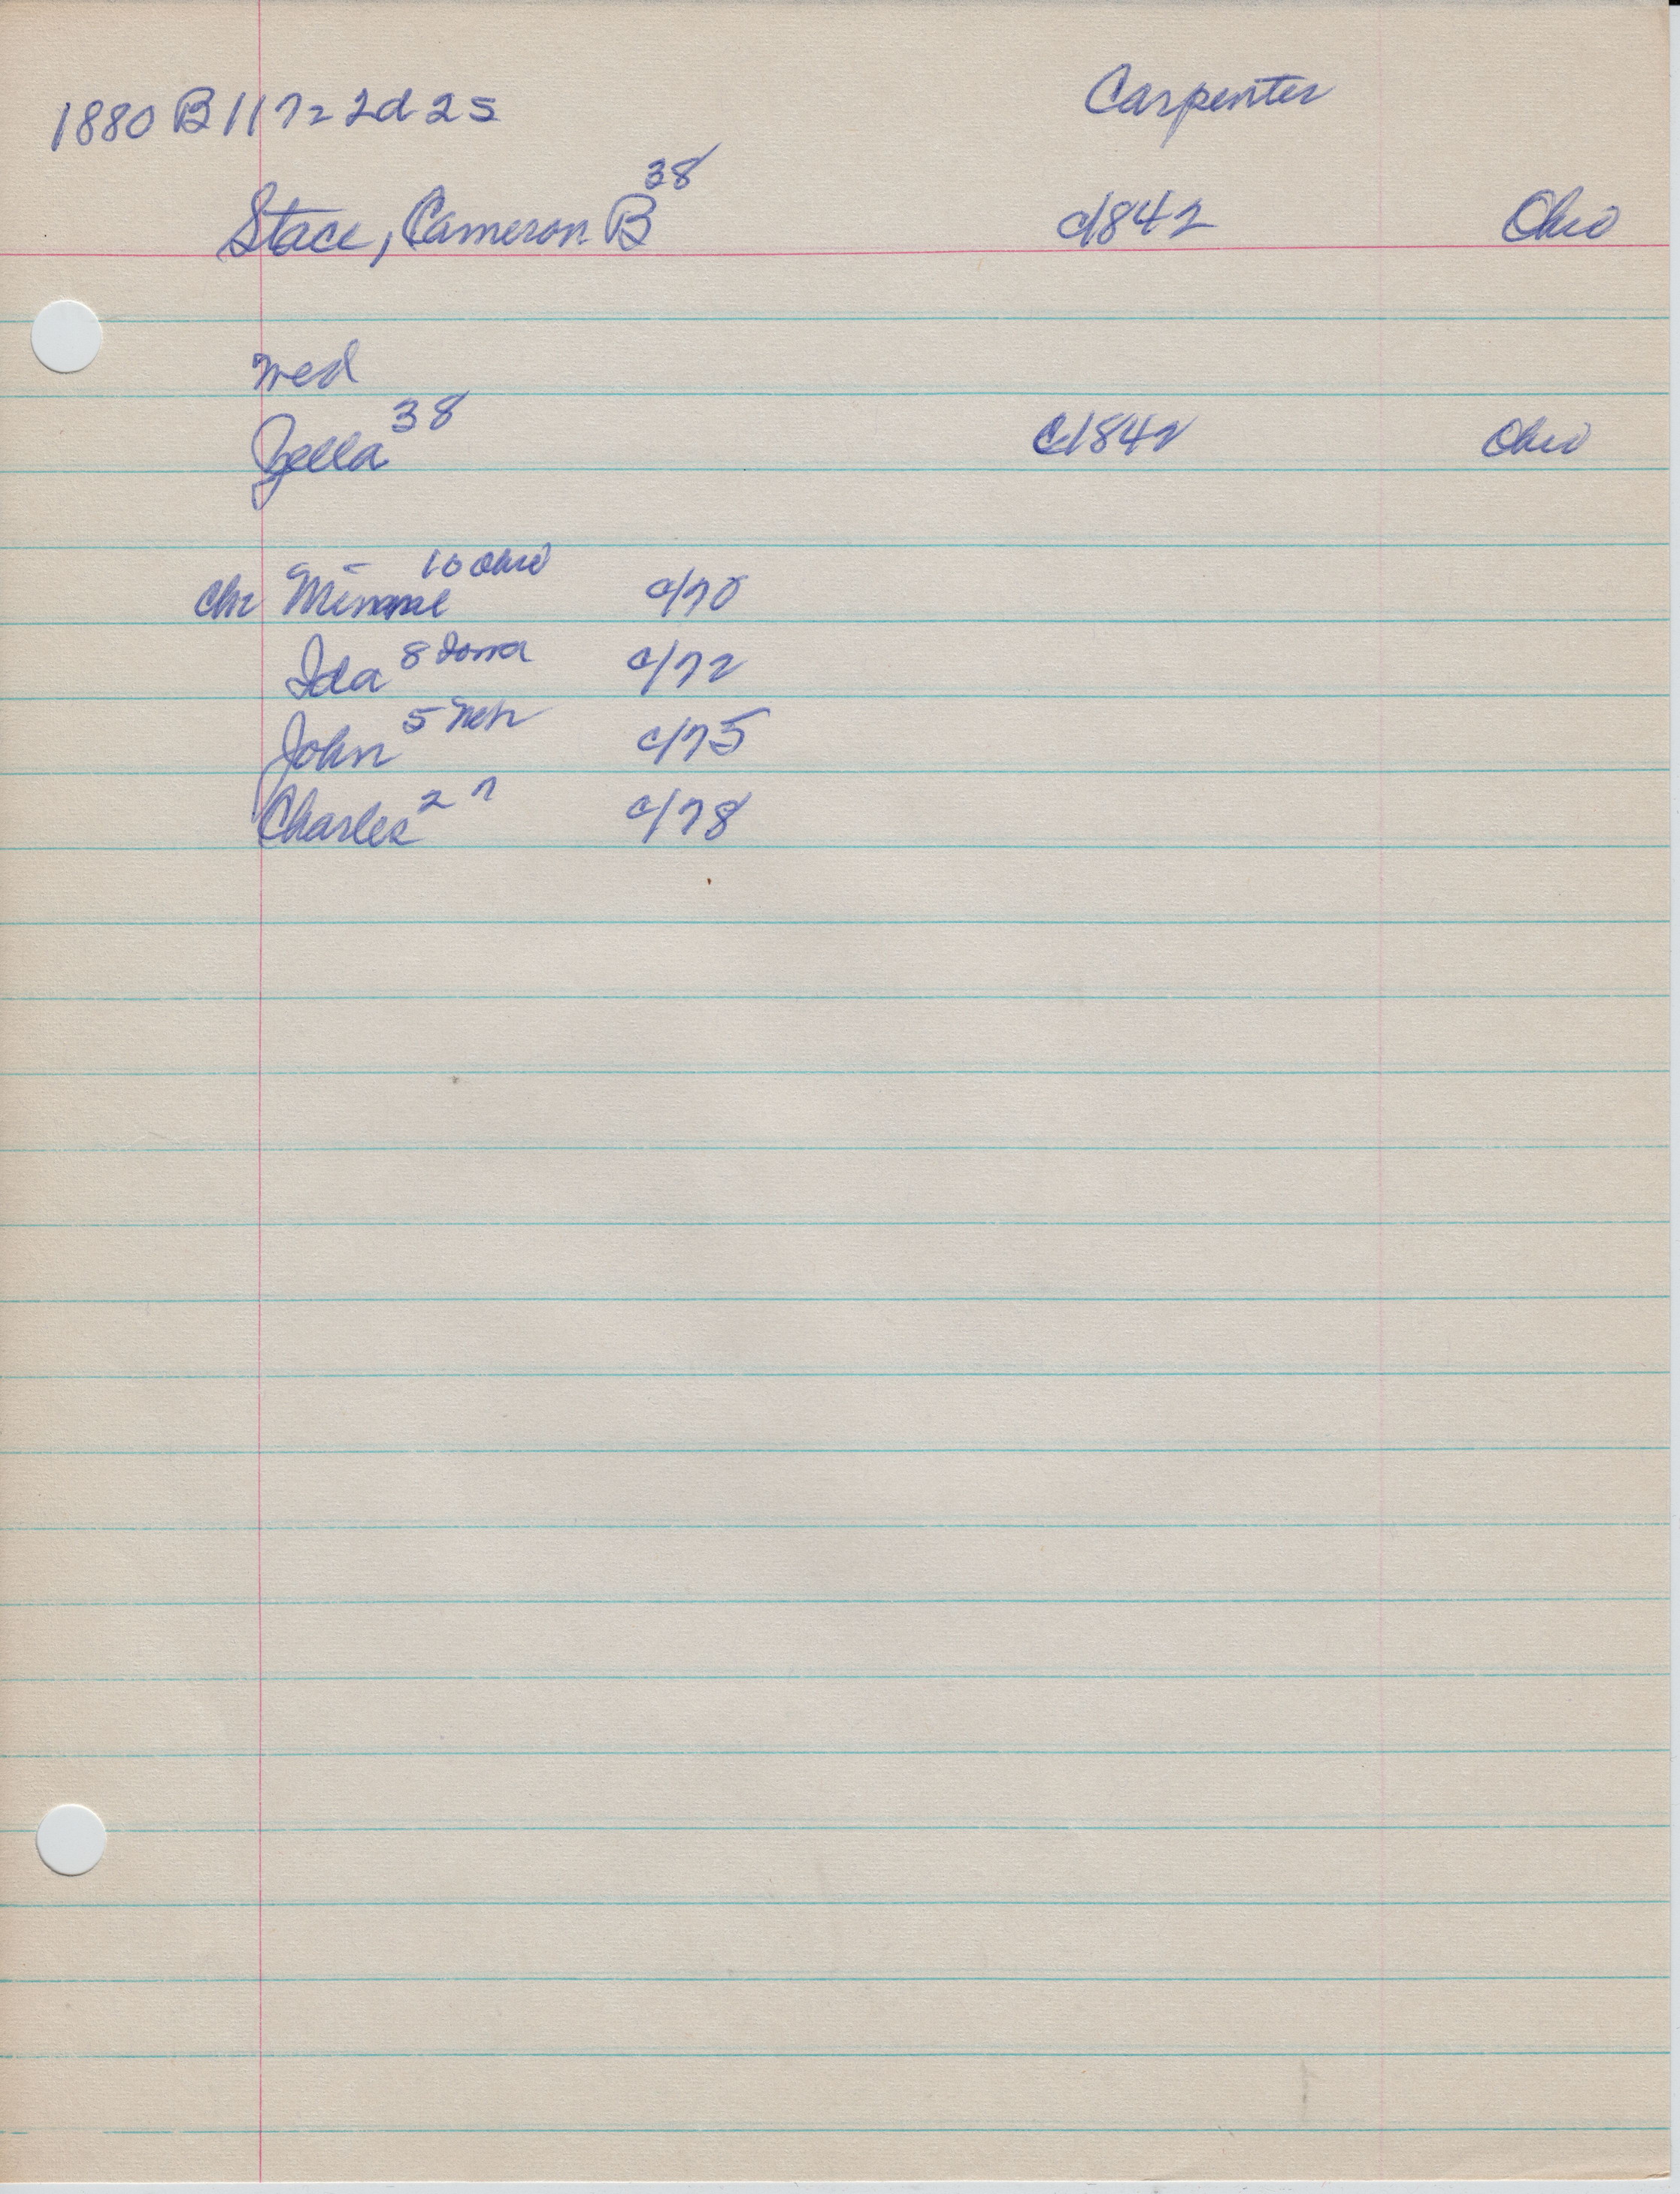 1880 B 117 = 2d 2s Carpenter
Stace, Cameron B 38 c1842 Ohio
med
Zella 38 c1842 Ohio
Chr Minnie 10 Ohio c/70
Ida 8 Iowa c/72
John 5 Neb c/75
Charles 2 " c/78